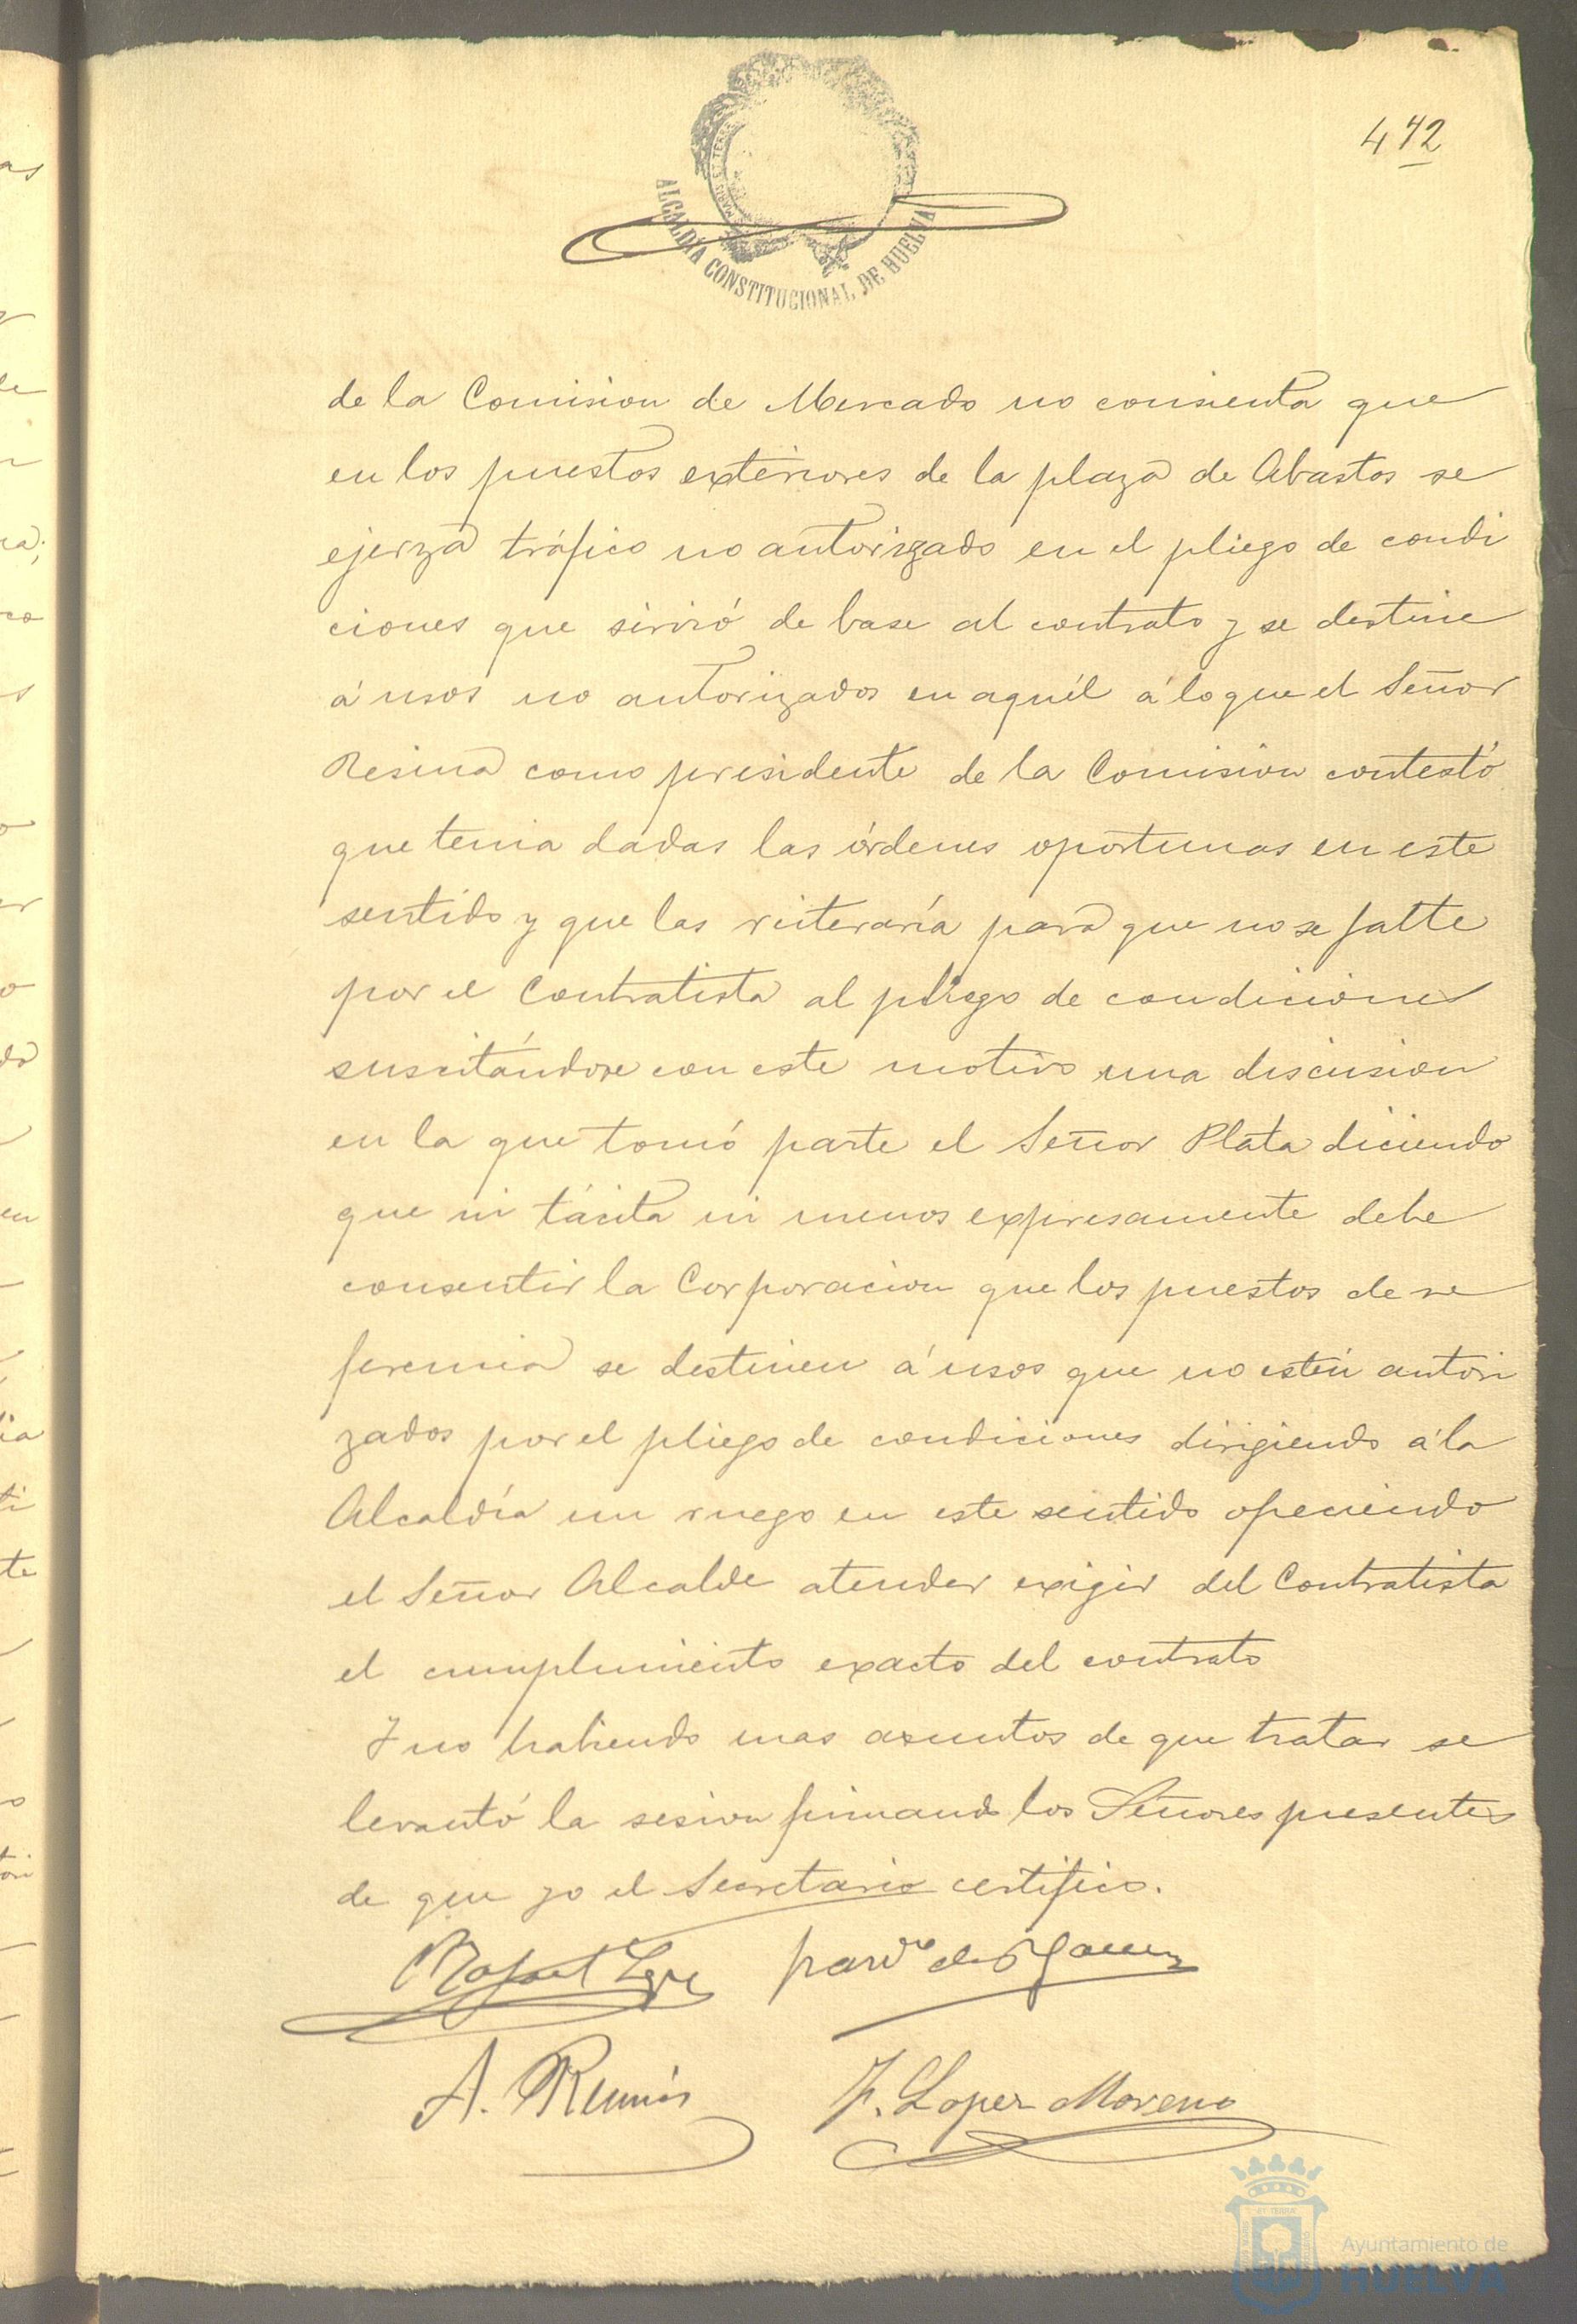 442
ALCALDÍA CONSTITUCIONAL DE HUELVA
de la Comision de Mercado no consienta que
en los puestos exteriores de la plaza de Abastos se
ejerza tráfico no autorizado en el pliego de condi
ciones que sirvió de base al contrato y se destine
á usos no autorizados en aquél á lo que el Señor
Resina como presidente de la Comision contestó
que tenia dadas las órdenes oportunas en este
sentido y que las reiteraría para que no se falte
por el Contratista al pliego de condiciones
suscitándose con este motivo una discusion
en la que tomó parte el Señor Plata diciendo
que ni tácita ni menos expresamente debe
consentir la Corporacion que los puestos de re
ferencia se destinen á usos que no estén autori
zados por el pliego de condiciones dirigiendo á la
Alcaldía un ruego en este sentido ofreciendo
el Señor Alcalde atender exigir del Contratista
el cumplimiento exacto del contrato
Y no habiendo mas asuntos de que tratar se
levantó la sesion firmando los Señores presentes
de que yo el Secretario certifico.
Rafael de
A. F. Lopez Moreno
Ayuntamiento de
HUELVA